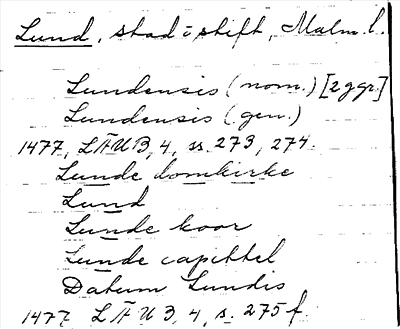 Lund, stad i stift, Malm. l.
Lundensis (nom.) [2 ggr.]
Lundensis (gen.)
1477, LÄUB, 4, ss. 273, 274.
Lunde domkirke
Lund
Lunde koor
Lunde capittel
Datum Lundis
1477 LÄUB, 4, s. 275 f.